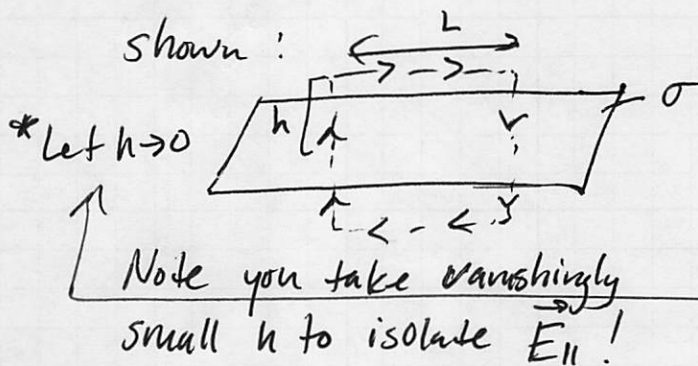 shown :
L
h
σ
* Let h→0
Note you take vanishingly
small h to isolate E⃗∥ !